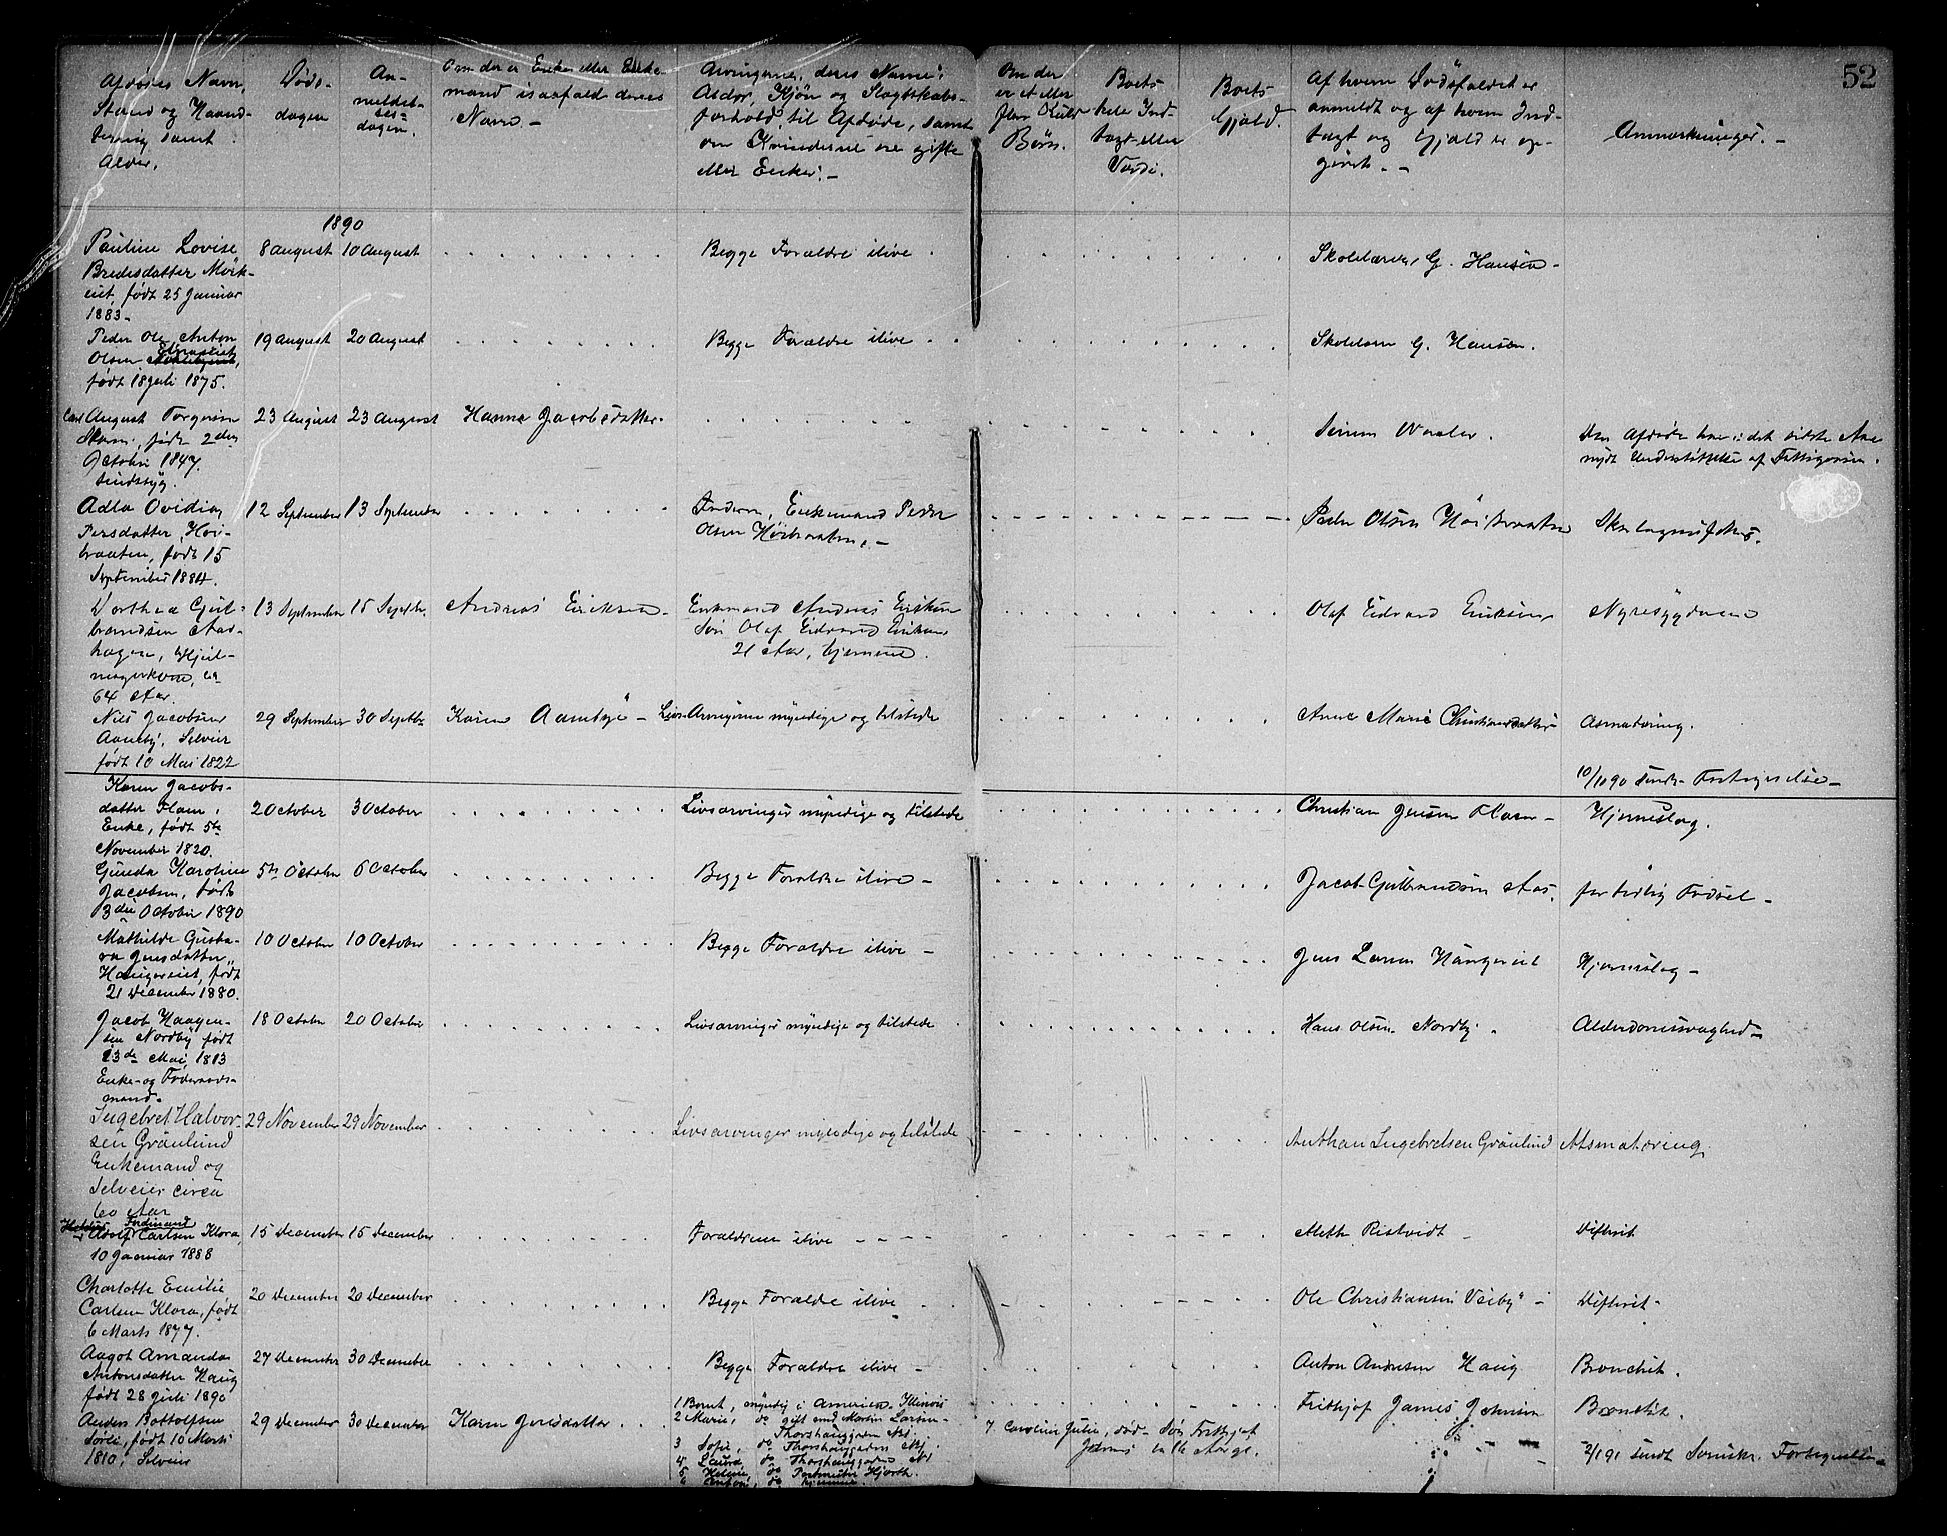 52
Afdødes Navn,
Stand og Haand-
tering samt
Alder.
Døds-
dagen
An-
meldel-
ses-
dagen.
Om der er Enke eller Enke-
mand isaafald deres
Navn –
Arvingerne, deres Navne,
Alder, Kjøn og Slagtskabs-
forhold til Afdøde, samt
om Kvinderne ere gifte
eller Enker. –
Om der
er et eller
flere Kuld
Børn.
Boets
hele Ind-
tægt eller
Værdi.
Boets
Gjæld.
Af hvem Dødsfaldet er
anmeldt og af hvem Ind-
tægt og Gjæld er op-
givet. –
Anmærkninger. –
1890
Pauline Lovise
Bredesdatter Mørk-
eiet, født 25 Januar
1883 –
8 August
10 August
Begge Forældre ilive
Skolelærer G. Hansen –
Peder Ole Anton
Olsen
født 18 Juli 1875.
19 August
20 August
Begge Forældre ilive
G. Hansen.
Carl August Torgersen
født 2den
October 1847.
sindssyg.
23 August
23 August
Hanne Jacobsdatter
Den Afdøde har i det sidste Aar
nydt Understøttelse af Fattigvæsen.
Adla Ovidia
Persdatter, Høi-
braaten, født 15
September 1884.
12 September
13 September
Enkemand Peder
Olsen Høibraaten. –
Peder Olsen Høibraaten
Dorthea Gul-
brandsen
hagen,
64 Aar
13 September
15 Septbr.
Andreas Eriksen
Enkemand Andreas Eriksen
Søn Olaf Edvard Eriksen
21 Aar, hjemme.
Olaf Edvard Eriksen
Nyresygdom
Niels Jacobsen
Aamby, Selveier
født 10 Mai 1822
29 September
30 Septbr
Karen Aamby –
Livs Arvingerne myndige og tilstede
Anne Marie Christiansdatter
Asmatæring.
10/11 90 sendt Fortegnelse –
Karen Jacobs-
datter Flaen,
Enke, født 5te
November 1820.
2 October
3 October
Livsarvinger myndige og tilstede
Christian Jensen Flaen –
Hjerneslag.
Gunda Karoline
Jacobsen, født
3die October 1890
5te October
6 October
Begge Forældre ilive –
Jacob Gulbrandsen Aas.
for tidlig Fødsel –
Mathilde Gusta-
va Jensdatter,
Haugereiet, født
21 December 1880.
10 October
10 October
Begge Forældre ilive –
Jens Larsen Haugereiet
Hjerneslag –
Jacob Haagen-
sen Nordby født
23de Mai 1813
Enke- og Føderaads-
mand.
18 October
20 October
Livsarvinger myndige og tilstede
Hans Olsen Nordby.
Alderdomssvaghed –
Ingebret Halvor-
sen Grønlund
Enkemand og
Selveier circa
60 Aar
29 November
29 November
Livsarvinger myndige og tilstede
Anthon Ingebretsen Grønlund
Atsmatæring
Ferdinand
Adolf Carlsen Klora,
10 Januar 1888
15 December
15 December
Forældrene ilive – – – –
Mette Ristvedt –
Difterit
Charlotte Emilie
Carlsen Klora, født
6 Marts 1877.
20 December
20 December
Begge Forældre ilive
Ole Christiansen Veiby –
Difterit –
Aagot Amanda
Antonsdatter Haug
født 28 Juli 1890
27 December
30 December
Begge Forældre ilive –
Anton Andresen Haug
Bronchit.
Anders Bottolfsen
Sørli, født 10 Marts
1810, Selveier
29 December
30 December
Karen Jensdatter
1 Bernt, myndig i Amerika, Illinois
2 Marie, do gift med Martin Larsen
Thorshauggaden No 1
3 Sofie, do Thorshauggaden No 1
4 Laura, do Thorshauggaden No 1
5 Helene, do Postmester Hjorth.
6 Anton, do hjemme.
7. Caroline Julie, død – Søn Frithjof
James
Frithjof James Johnsen
Bronchit.
2/1 91 sendt Sorenskr. Fortegnelse –